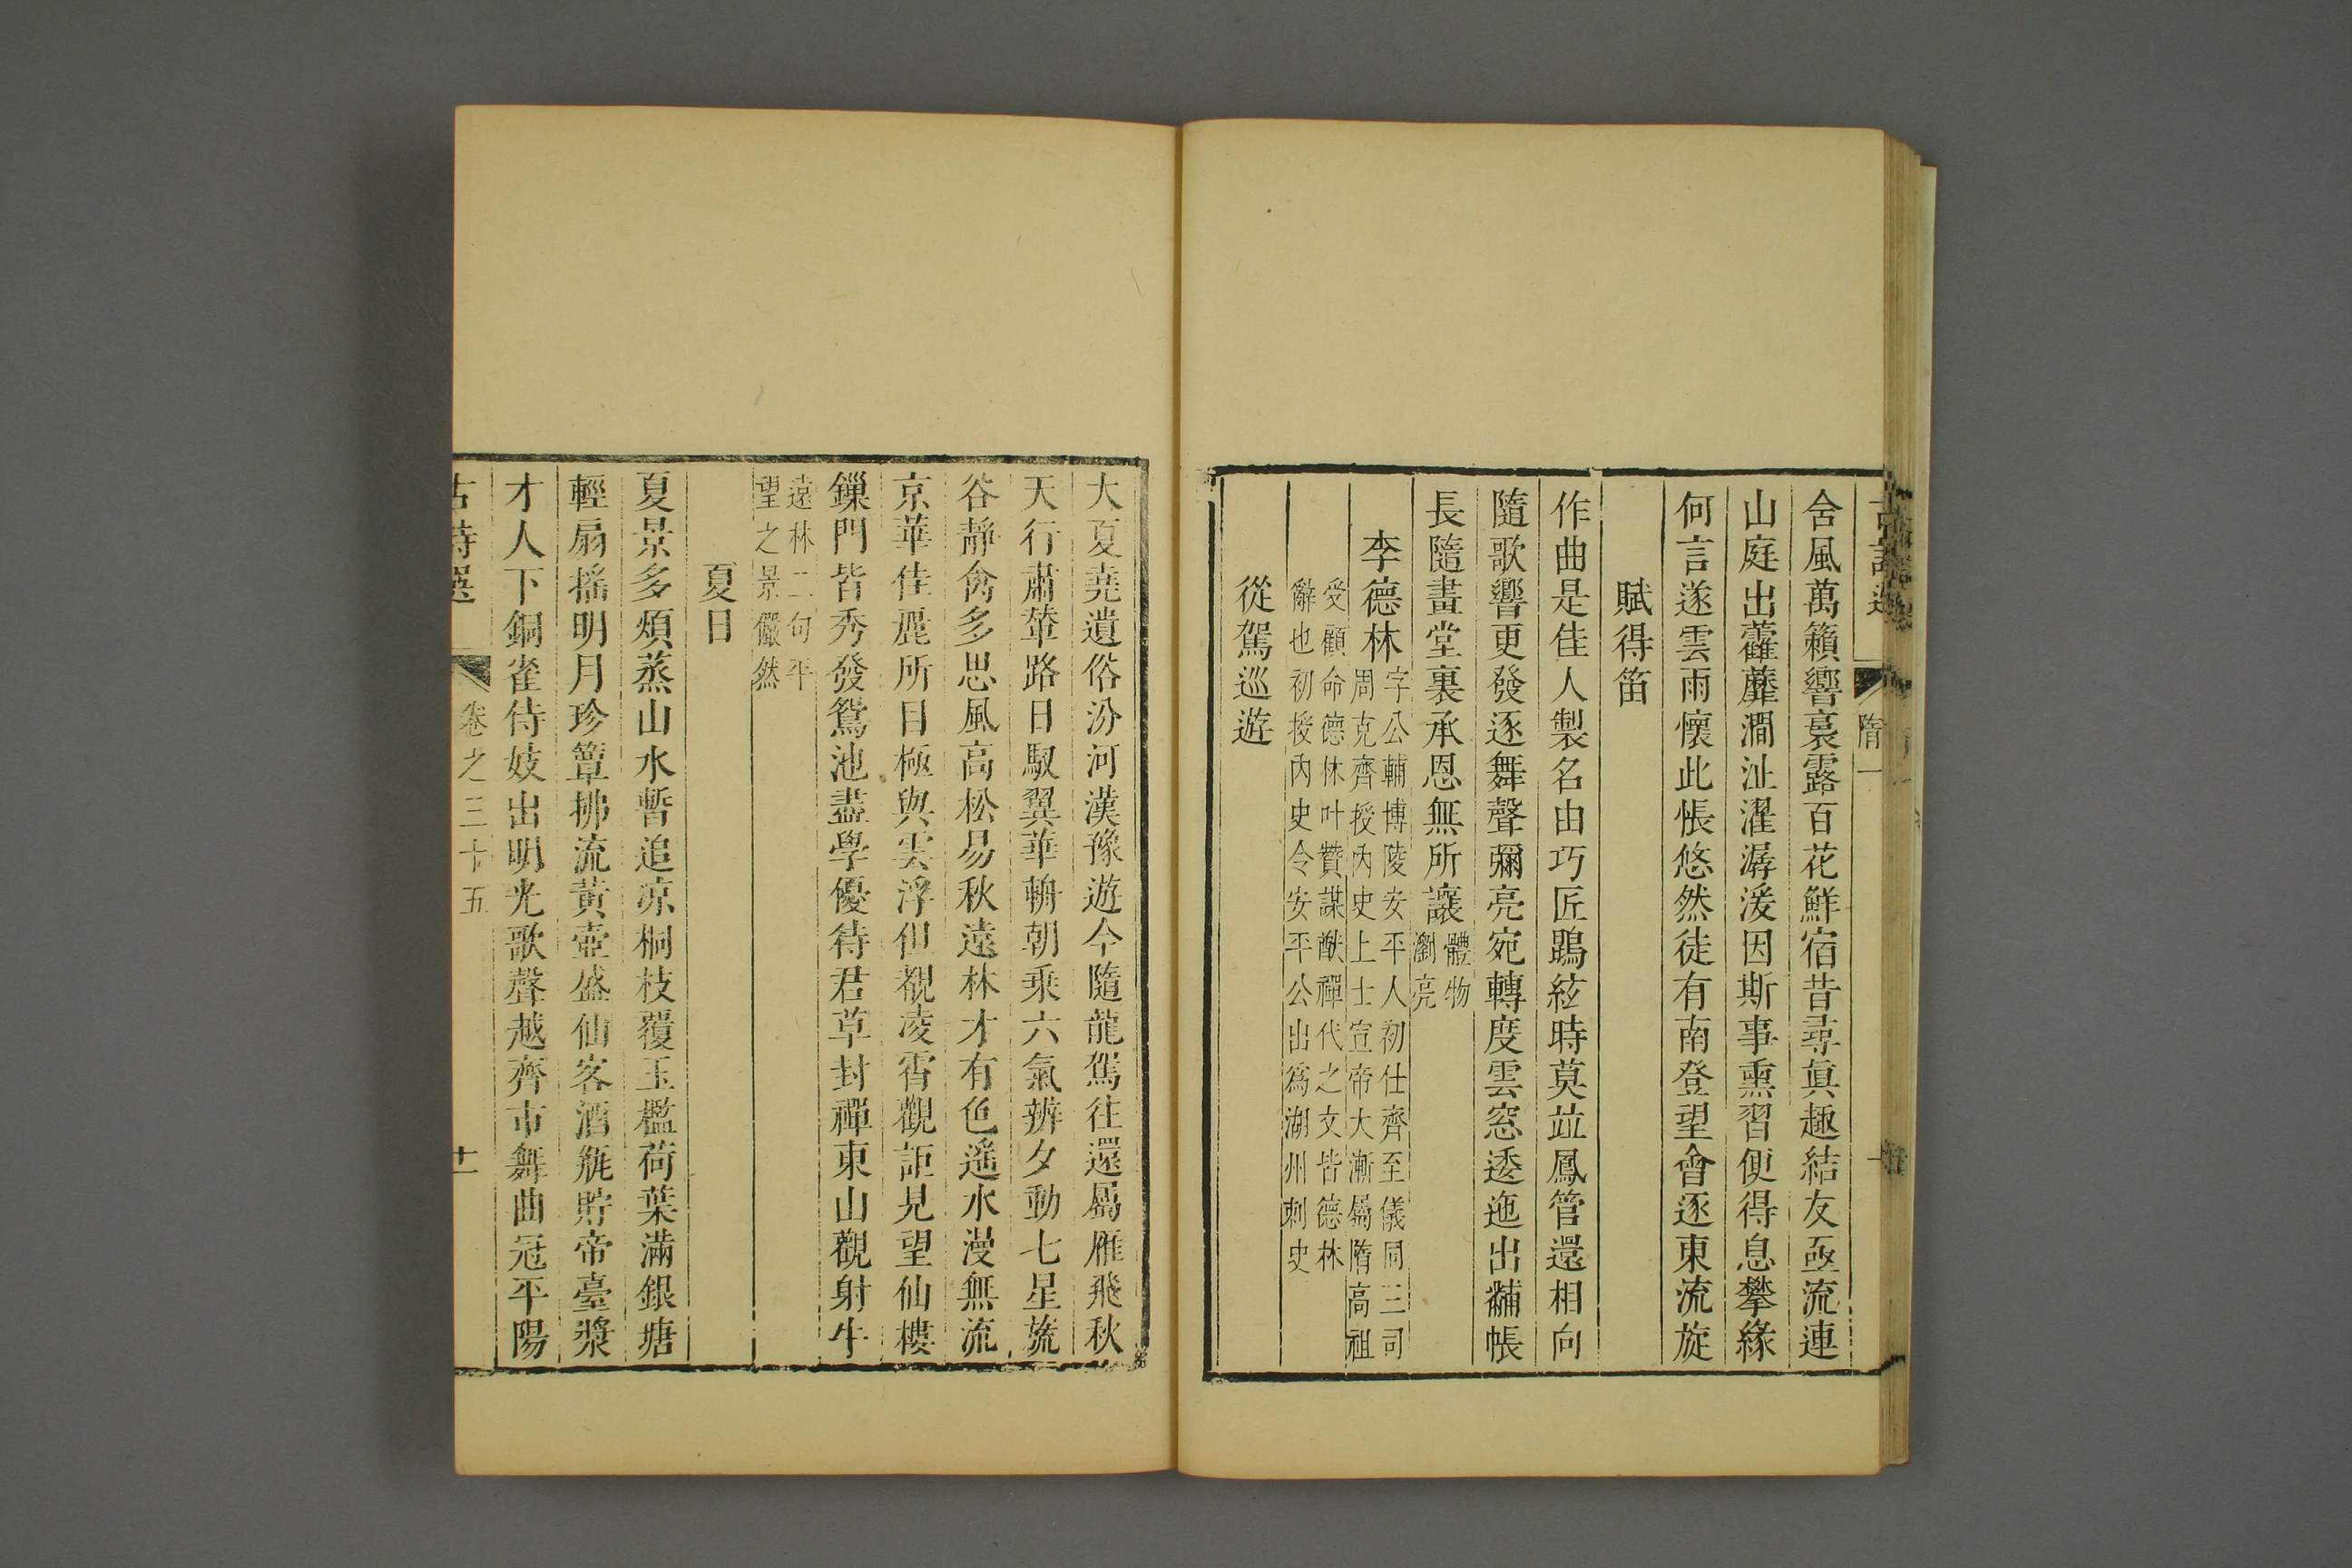 隋一
舍風萬籟響裛露百花鮮宿昔尋眞趣結友亟流連
山庭出藿蘼澗沚濯潺湲因斯事熏習便得息攀緣
何言遂雲雨懷此悵悠然徒有南登望會逐東流旋
賦得笛
作曲是佳人製名由巧匠鵾絃時莫並鳳管還相向
隨歌響更發逐舞聲彌亮宛轉度雲窓逶迤出黼帳
長隨畫堂裏承恩無所讓
體物
瀏亮
李德林
字公輔博陵安平人初仕齊至儀同三司
周克齊授內史上士宣帝大漸屬隋高祖
受顧命德林叶贊謀猷禪代之文皆德林
辭也初授內史令安平公出爲湖州刺史
從駕巡遊
大夏堯遺俗汾河漢豫遊今隨龍駕往還屬雁飛秋
天行肅輦路日馭翼華輈朝乘六氣辨夕動七星旒
谷靜禽多思風高松易秋遠林才有色遙水漫無流
京華佳麗所目極與雲浮但覩凌霄觀詎見望仙樓
鏁門皆秀發鴛池盡學優待君草封禪東山觀射牛
遠林二句平
望之景儼然
夏日
夏景多煩蒸山水暫追凉桐枝覆玉檻荷葉滿銀塘
輕扇搖明月珍簟拂流黃壺盛仙客酒缾貯帝臺漿
才人下銅雀侍妓出明光歌聲越齊市舞曲冠平陽
古詩選 卷之三十五 十一